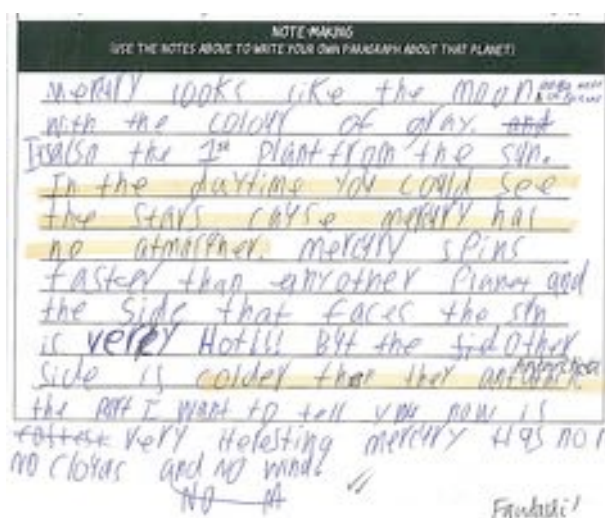 NOTE-MAKING
(USE THE NOTES ABOVE TO WRITE YOUR OWN PARAGRAPH ABOUT THAT PLANET!)
mercury looks like the moon
with the colour of gray. and
Itsalso the 1st plant from the sun.
In the daytime you could see
the stars cause mercury has
no atmospher. mercury spins
faster than anyother Planet and
the side that faces the sun
is very Hot!!! But the sid other
side is colder than they
the part I want to tell you now is
very itelesting mercury Has nor
NO clouds and NO wind.
NO A